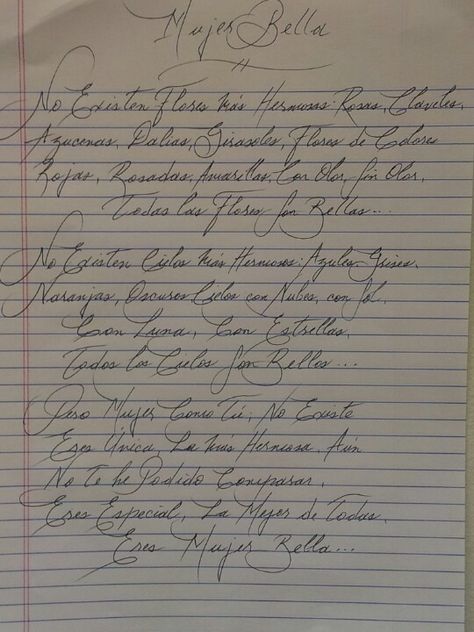 Mujer Bella
No Existen Flores más Hermosas: Rosas, Claveles,
Azucenas, Dalias, Girasoles, Flores de Colores
Rojas, Rosadas, Amarillas, Con Olor, Sin Olor,
Todas las Flores son Bellas...
No Existen Cielos más Hermosos: Azules, Grises,
Naranjas, Oscuros Cielos con Nubes, con Sol,
Con Luna, Con Estrellas,
Todos los Cielos Son Bellos...
Pero Mujer Como Tú, No Existe
Eres Única, La más Hermosa, Aún
No Te he Podido Comparar,
Eres Especial, La Mejor de Todas,
Eres Mujer Bella...